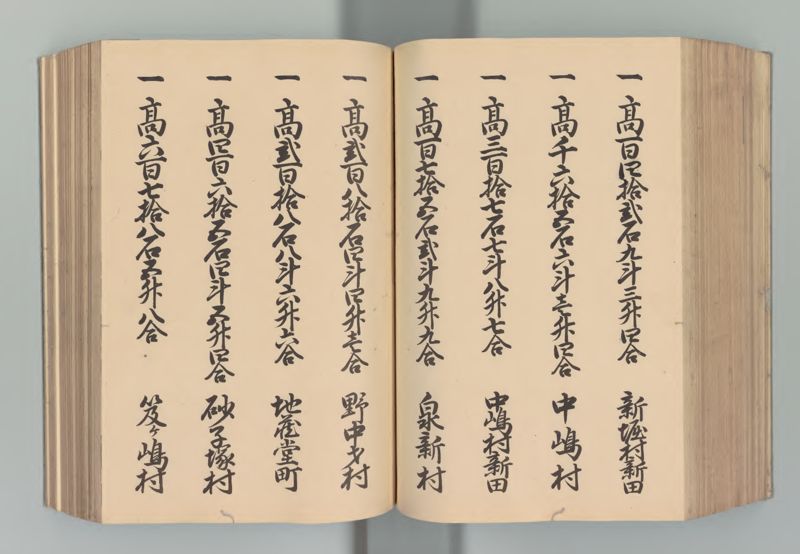 一 高百四拾弐石九斗三升四合 新堀村新田
一 高千六拾五石六斗壱升四合 中嶋村
一 高三百拾七石七斗八升七合 中嶋村新田
一 高百七拾五石弐斗九升九合 泉新村
一 高弐百八拾石四斗四升壱合 野中才村
一 高弐百拾八石八斗六升六合 地蔵堂町
一 高四百六拾五石四斗五升四合 砂子塚村
一 高六百七拾八石五升八合 笈ヶ嶋村